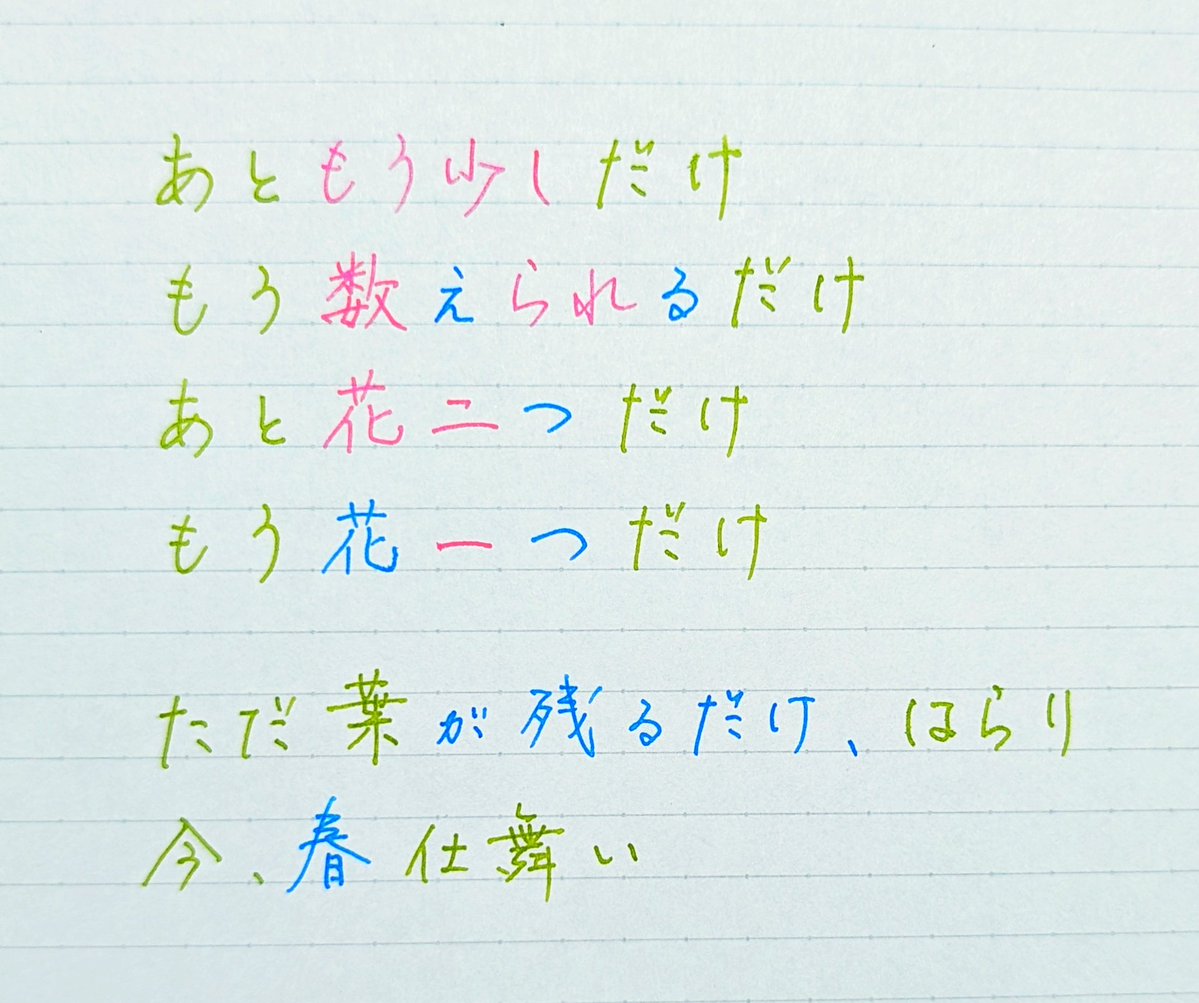 あともう少しだけ
もう数えられるだけ
あと花二つだけ
もう花一つだけ
ただ葉が残るだけ、はらり
今、春仕舞い